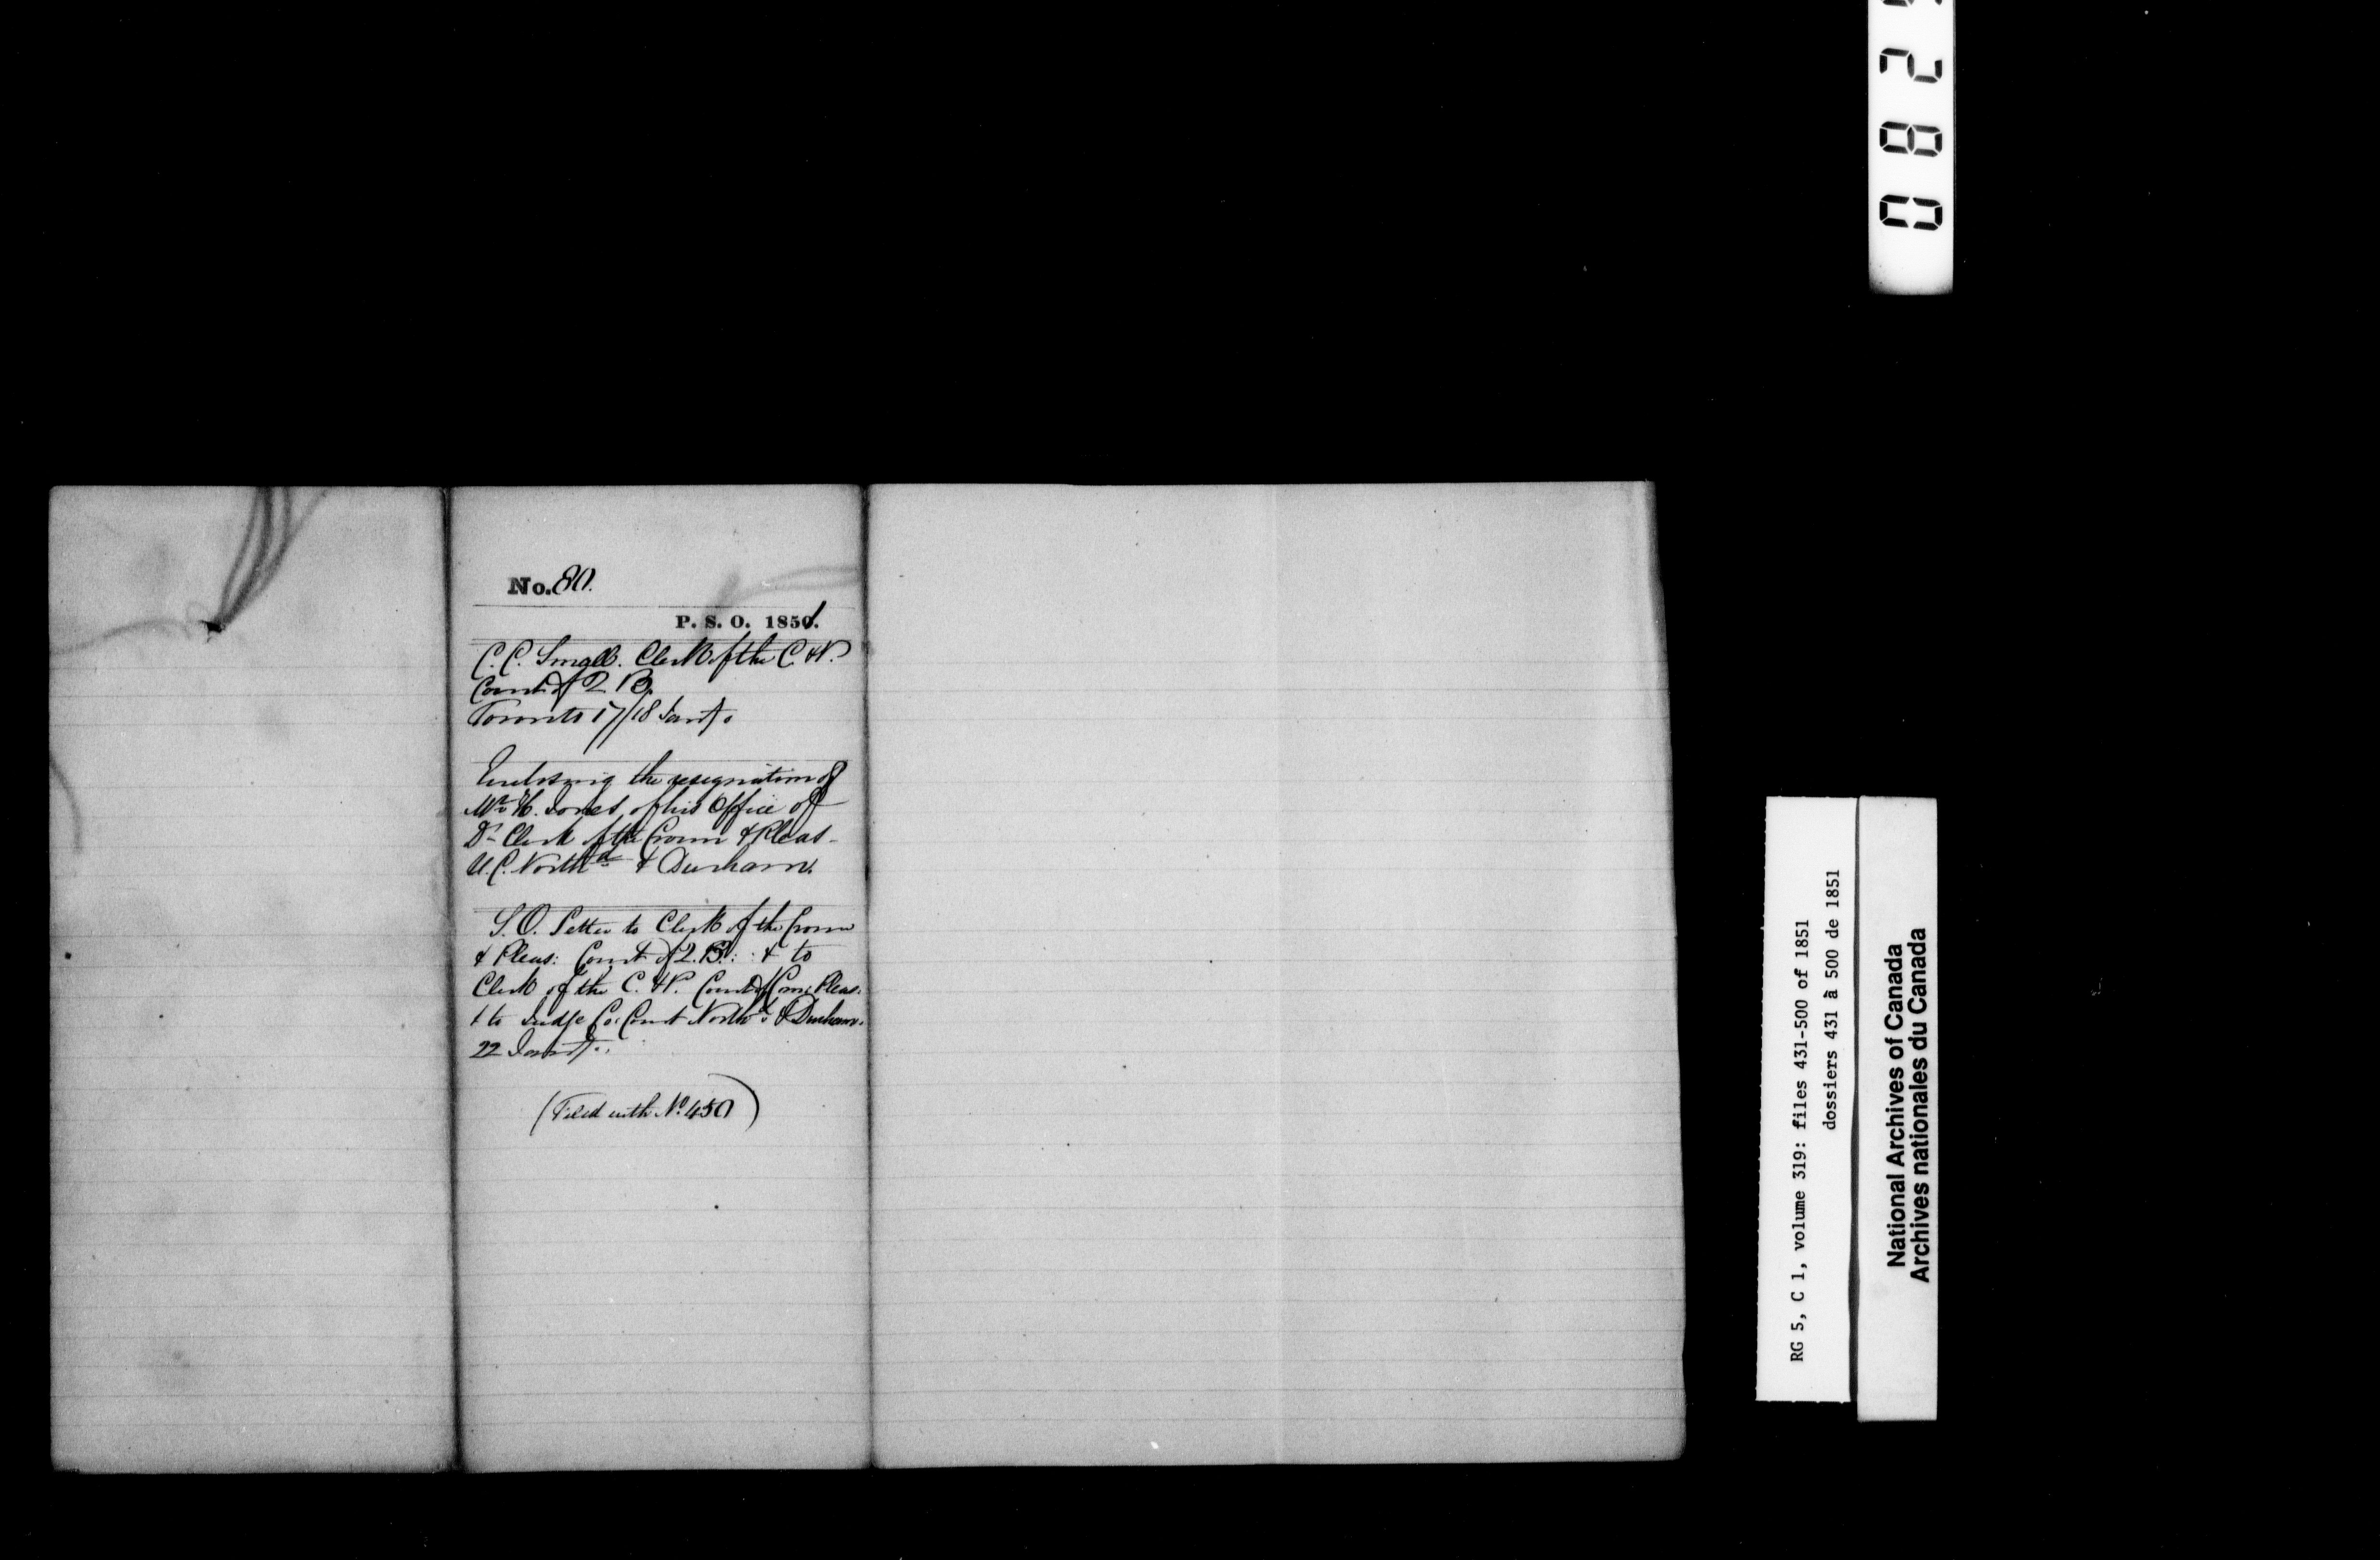 No. 80.
P. S. O. 1851.
C. C. Small. Clerk of the C. & P.
Court of Q B.
Toronto 17/18 Jany.
Enclosing the resignation of
Mr. H. Jones, of his Office of
Dy. Clerk of the Crown & Pleas
U.C. Northd & Durham.
S. O. Letter to Clerk of the Crown
& Pleas: Court of Q. B.: & to
Clerk of the C. & P. Court of Com: Pleas:
& to Judge Co: Court Northd & Durham.
22 Jany.
(Filed with No. 450)
RG 5, C 1, volume 319: files 431-500 of 1851
dossiers 431 à 500 de 1851
National Archives of Canada
Archives nationales du Canada
082